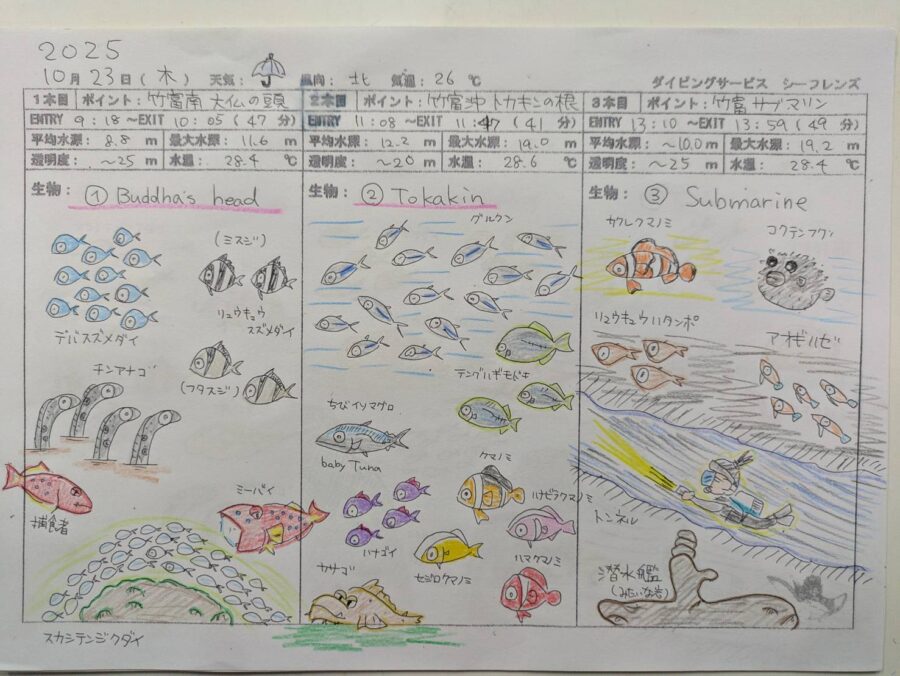 2025
10月 23日 ( 木 ) 天気： 風向： 北 気温： 26 ℃ ダイビングサービス シーフレンズ
1本目 ポイント： 竹富南 大仏の頭
ENTRY 9 : 18 ~EXIT 10 : 05 ( 47 分)
平均水深： 8.8 m 最大水深： 11.6 m
透明度： ~25 m 水温： 28.4 ℃
生物： ① Buddha's head
(ミスジ)
リュウキュウ
スズメダイ
デバスズメダイ
チンアナゴ
(フタスジ)
ミーバイ
捕食者
スカシテンジクダイ
2本目 ポイント： 竹富沖 トカキンの根
ENTRY 11 : 08 ~EXIT 11 : 47 ( 41 分)
平均水深： 12.2 m 最大水深： 19.0 m
透明度： ~20 m 水温： 28.6 ℃
生物： ② Tokakin
グルクン
テングハギモドキ
ちびイソマグロ
baby Tuna
クマノミ
ハナビラクマノミ
ハナゴイ
セジロクマノミ
ハマクマノミ
カサゴ
3本目 ポイント： 竹富 サブマリン
ENTRY 13 : 10 ~EXIT 13 : 59 ( 49 分)
平均水深： ~10.0 m 最大水深： 19.2 m
透明度： ~25 m 水温： 28.4 ℃
生物： ③ Submarine
カクレクマノミ
コクテンフグ
リュウキュウハタンポ
アオギハゼ
トンネル
潜水艦
(みたいな岩)